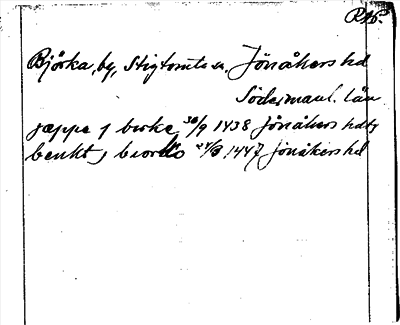 RAP.
Björka, by, Stigtomta sn. Jönåkers hd
Södermanl. län
jæppe j birke 30/9 1438 Jönåkers hdtg
benkt j biordo 24/3 1447 Jönåkers hd